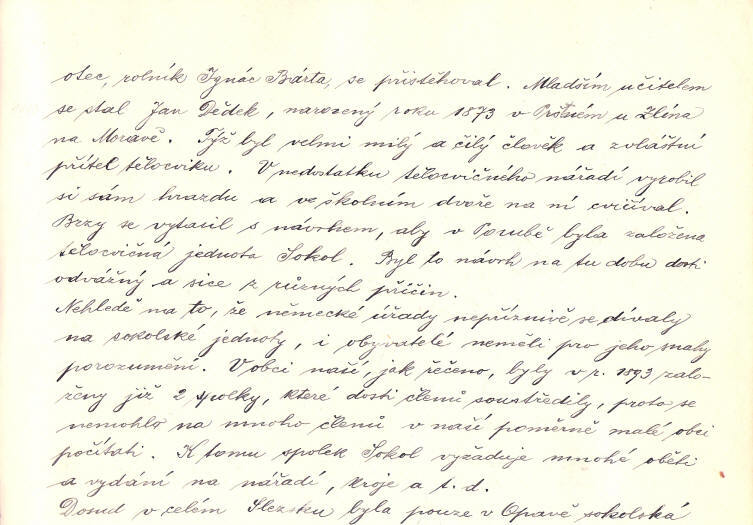 otec, rolník Ignác Bárta, se přistěhoval. Mladším učitelem
se stal Jan Dědek, narozený roku 1873 v u Zlína
na Moravě. Týž byl velmi milý a čilý člověk a zvláštní
přítel tělocviku. V nedostatku tělocvičného nářadí vyrobil
si sám hrazdu a ve školním dvoře na ní cvičíval.
Brzy se vytasil s návrhem, aby v Porubě byla založena
tělocvičná jednota Sokol. Byl to návrh na tu dobu dosti
odvážný a sice z různých příčin.
Nehledě na to, že německé úřady nepříznivě se dívaly
na sokolské jednoty, i obyvatelé neměli pro jeho snahy
porozumění. V obci naší, jak řečeno, byly v r. 1893 zalo-
ženy již 2 spolky, které dosti členů soustředily, proto se
nemohlo na mnoho členů v naší poměrně malé obci
počítati. K tomu spolek Sokol vyžaduje mnohé oběti
a vydání na nářadí, kroje a t. d.
Dosud v celém Slezsku byla pouze v Opavě sokolská